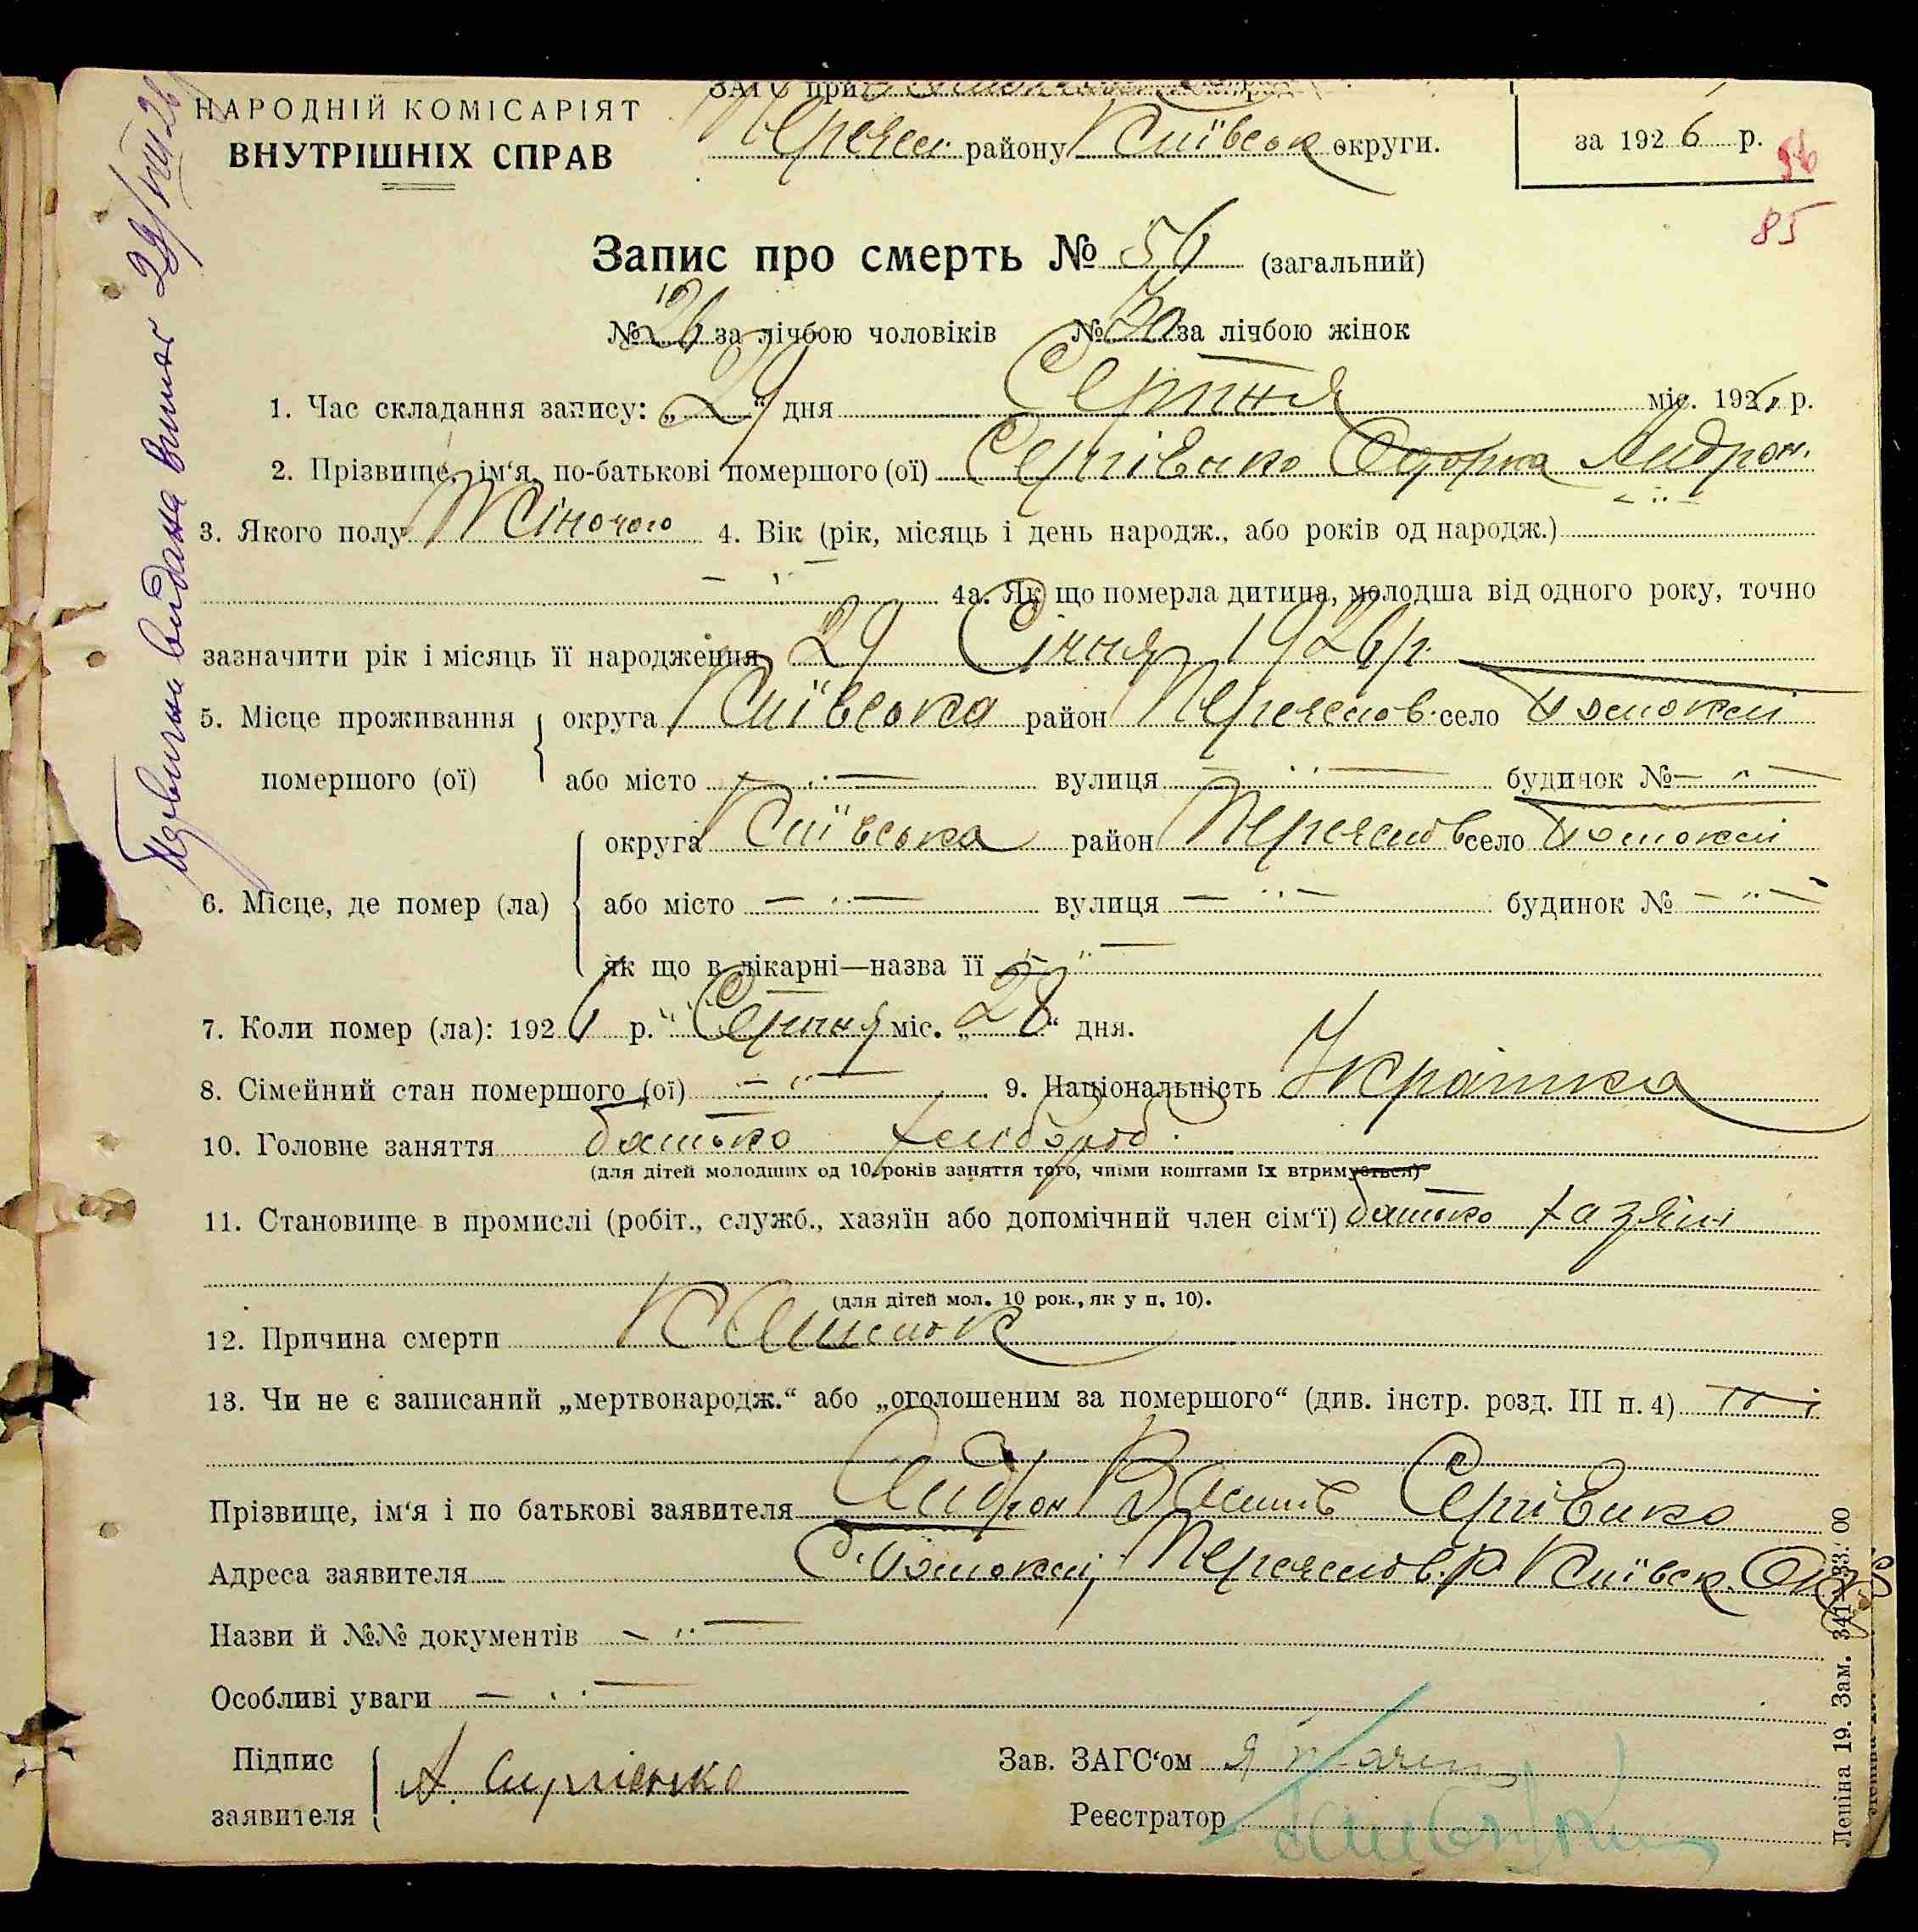 НАРОДНІЙ КОМІСАРІЯТ
ВНУТРІШНІХ СПРАВ
ЗАГС при
Переясл. району Київськ округи.
за 1926 р.
56
85
Запис про смерть № 56 (загальний)
№ 26 за лічбою чоловіків № 30 за лічбою жінок
1. Час складання запису: „29“ дня Серпня міс. 1926 р.
2. Прізвище, ім‘я, по-батькові помершого (ої) Сергієнко Одарка Андрон.
3. Якого полу Жіночого 4. Вік (рік, місяць і день народж., або років од народж.)
4а. Як що померла дитина, молодша від одного року, точно
зазначити рік і місяць її народження 29 Січня 1926 р.
5. Місце проживання помершого (ої) округа Київська район Переяслов. село
або місто вулиця будинок №
6. Місце, де помер (ла) округа Київська район Переяслов село
або місто вулиця будинок №
як що в лікарні—назва її
7. Коли помер (ла): 1926 р. „Серпня міс. „28“ дня.
8. Сімейний стан помершого (ої) 9. Національність Українка
10. Головне заняття батько хлібороб
(для дітей молодших од 10 років заняття того, чиїми коштами їх втримується)
11. Становище в промислі (робіт., служб., хазяїн або допомічний член сім‘ї) батько хазяїн
(для дітей мол. 10 рок., як у п. 10).
12. Причина смерти Кашлюк
13. Чи не є записаний „мертвонародж.“ або „оголошеним за помершого“ (див. інстр. розд. III п. 4) Ні
Прізвище, ім‘я і по батькові заявителя Андрон Сергієнко
Адреса заявителя с. Переяслов. р Київськ. Окр
Назви й №№ документів
Особливі уваги
Підпис заявителя А. Сергієнко
Зав. ЗАГС‘ом
Реєстратор
видана 29/VIII 26
Леніна 19. Зам. 341